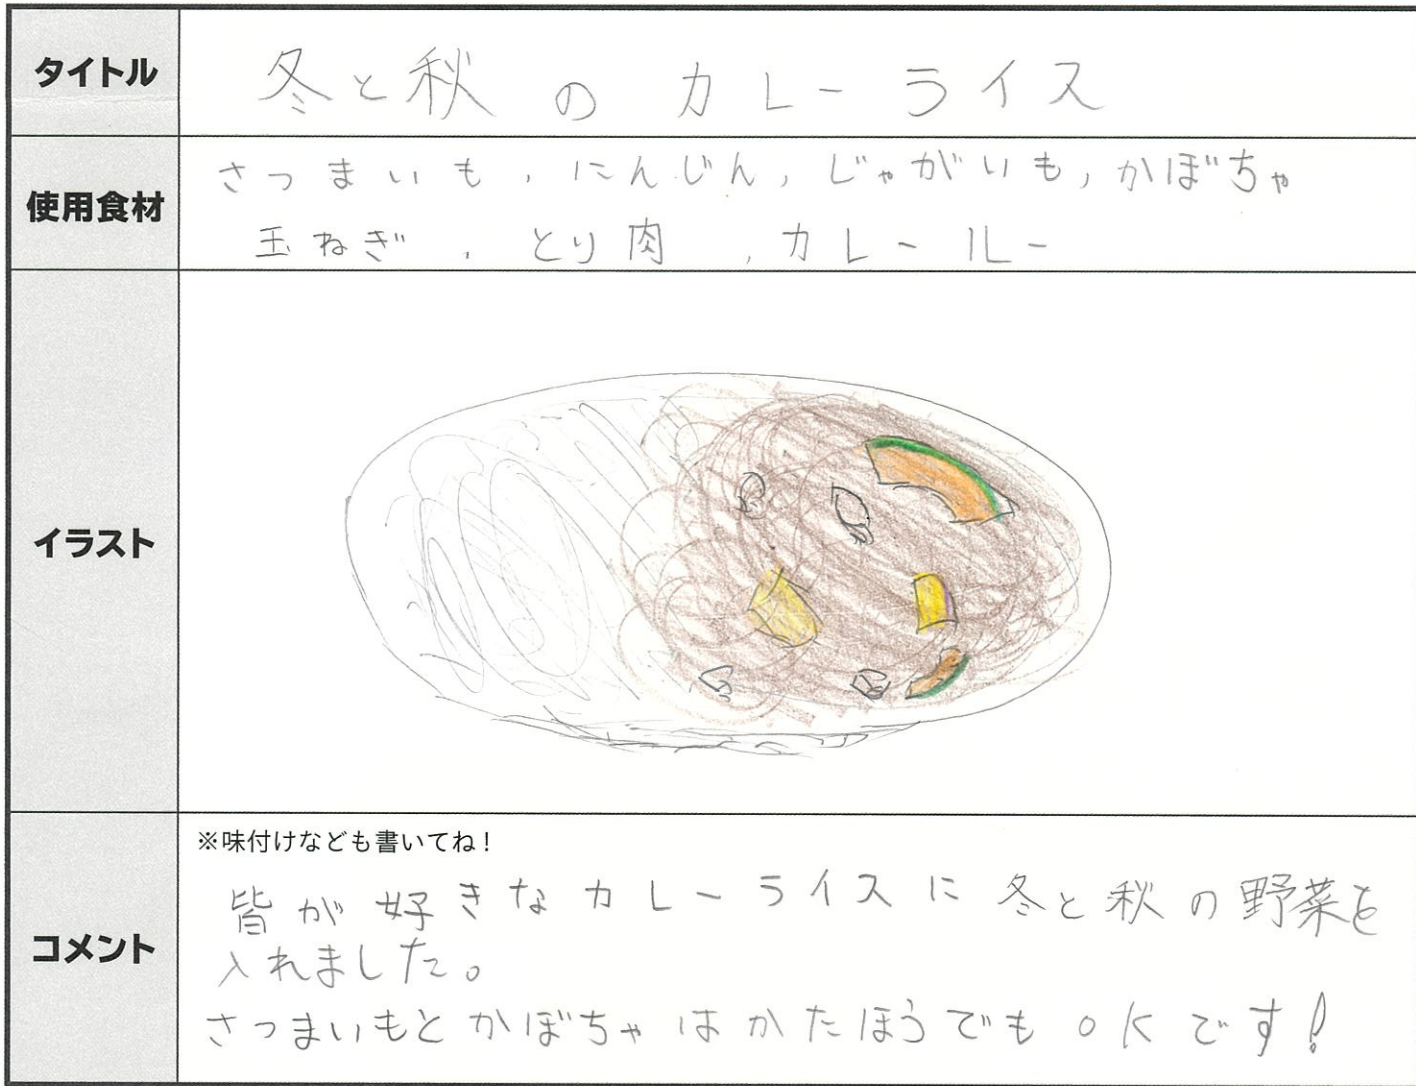 タイトル
冬と秋のカレーライス
使用食材
さつまいも,にんじん,じゃがいも,かぼちゃ
玉ねぎ,とり肉,カレールー
イラスト
コメント
※味付けなども書いてね!
皆が好きなカレーライスに冬と秋の野菜を
入れました。
さつまいもとかぼちゃはかたほうでもOKです!